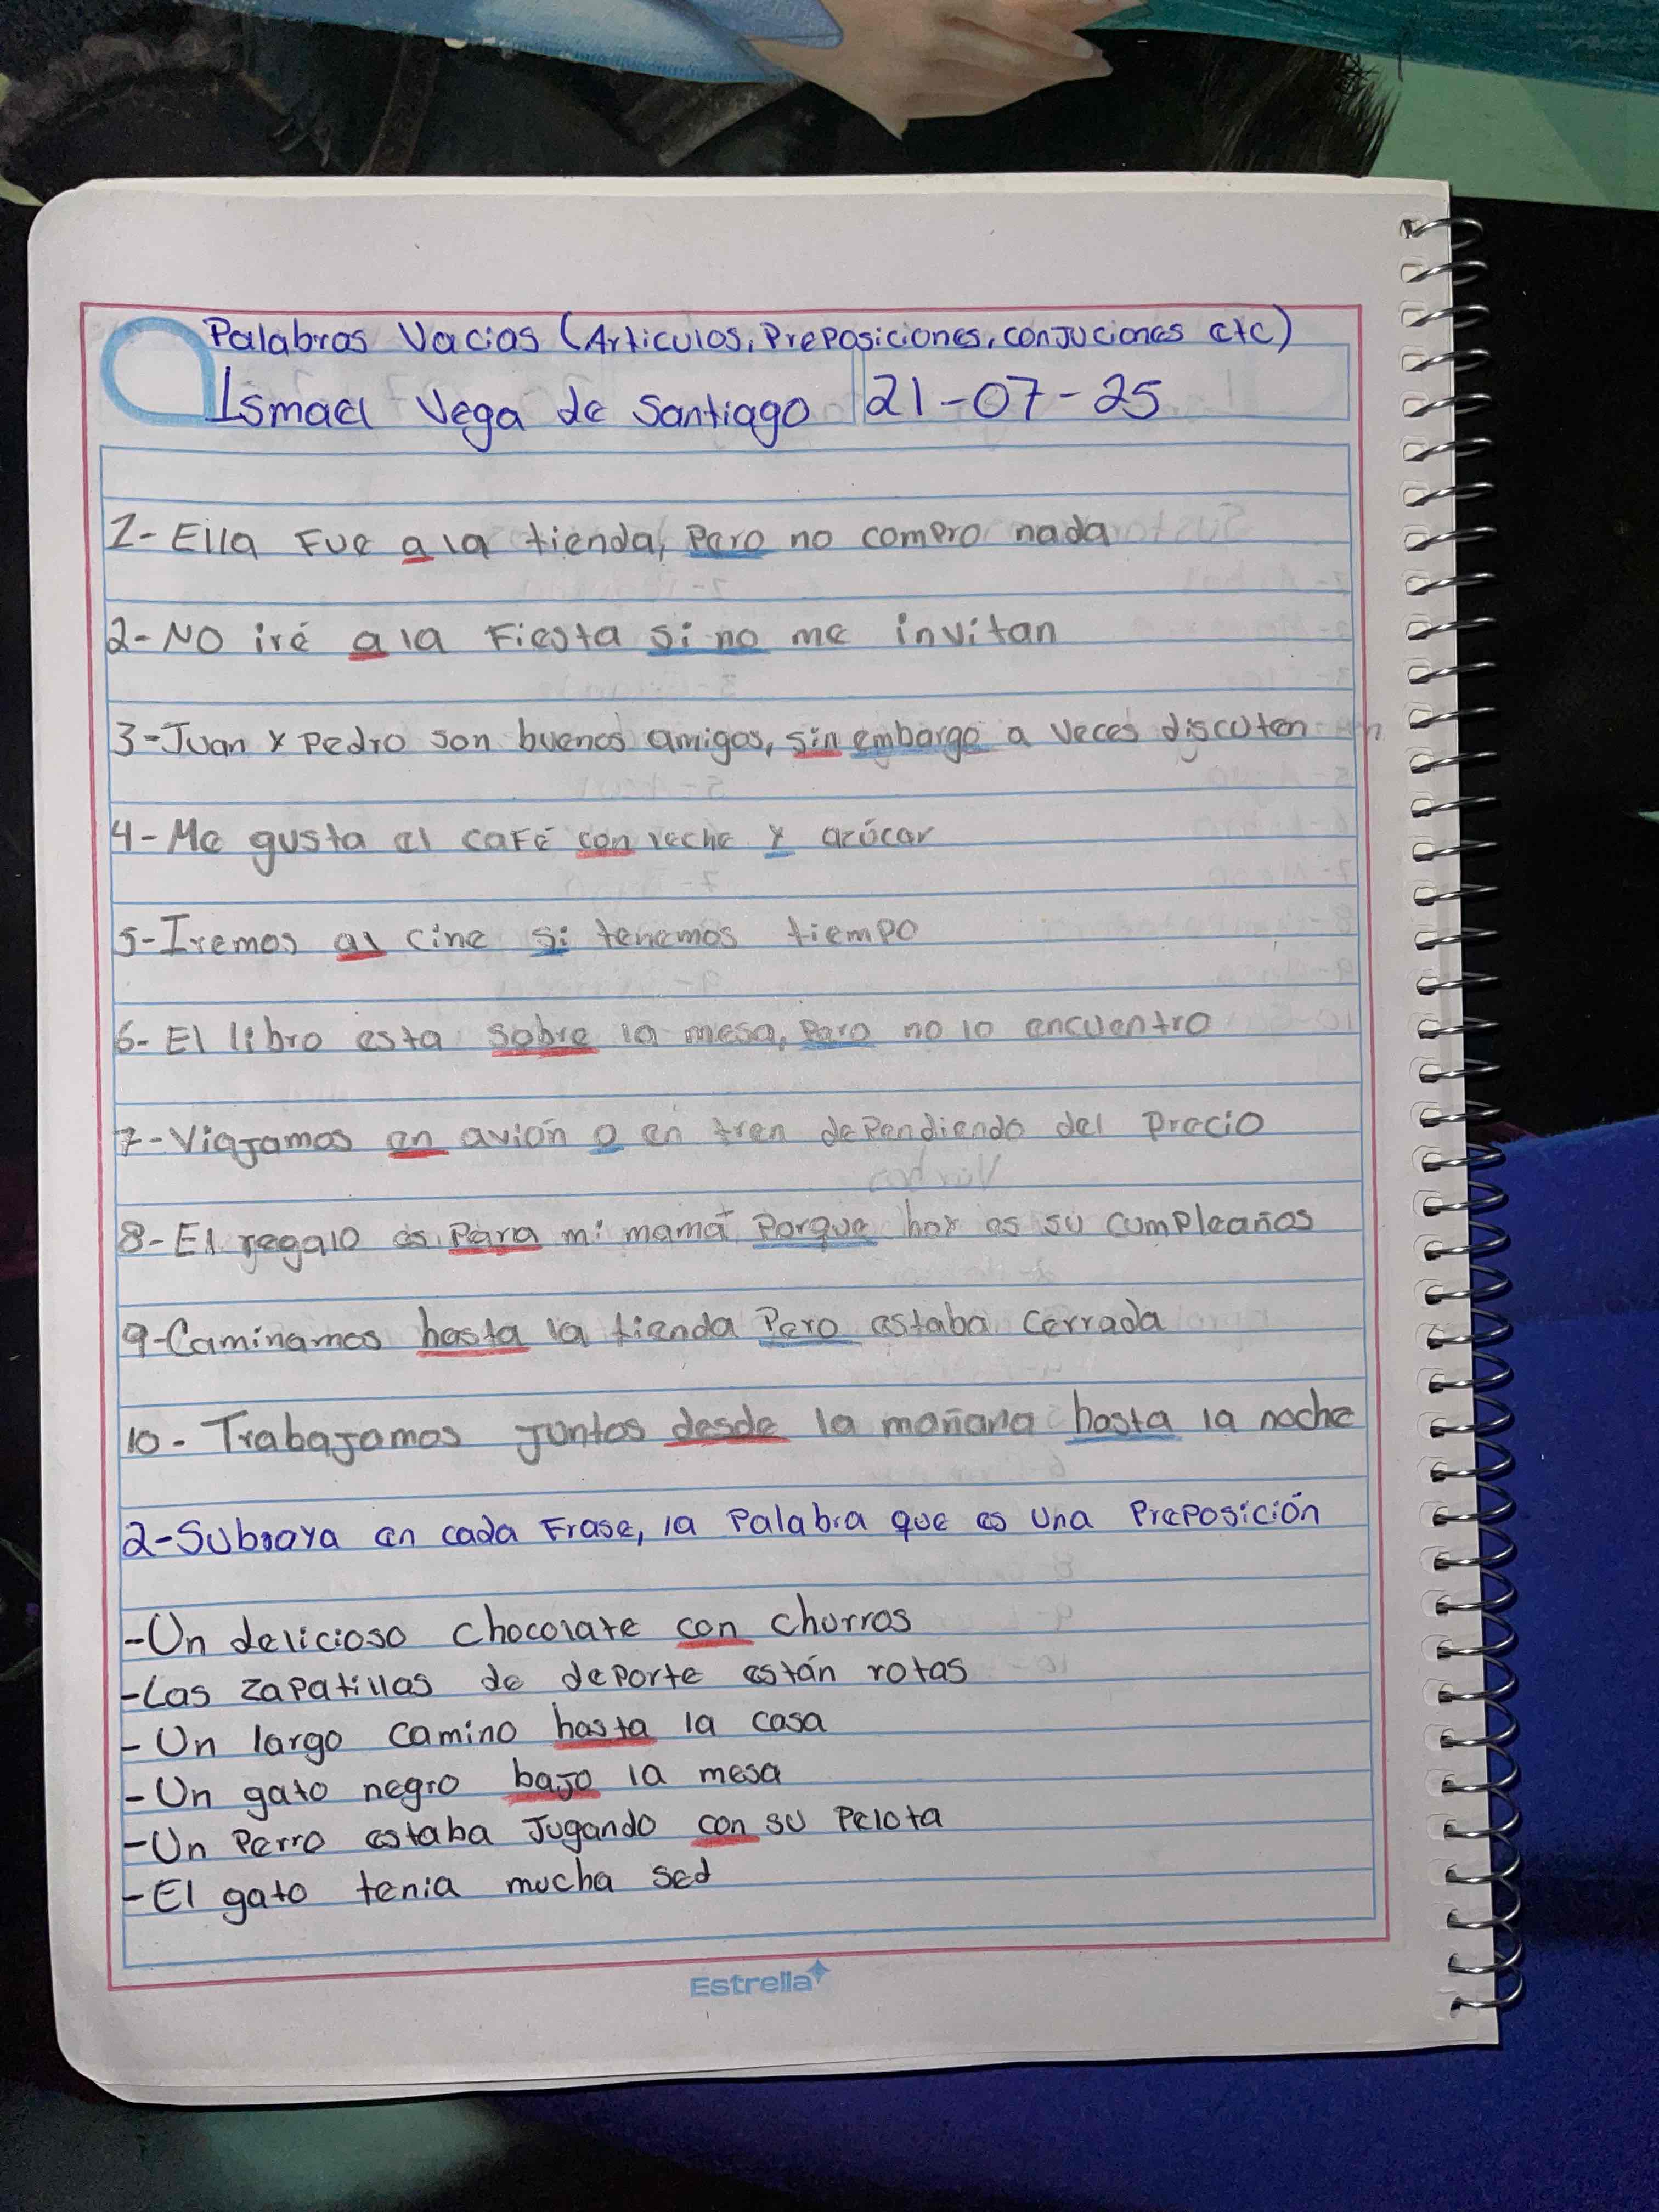 Palabras Vacias (Articulos, Preposiciones, conjuciones etc)
Ismael Vega de Santiago 21-07-25
1- Ella Fue a la tienda, Pero no compro nada
2- No iré a la Fiesta si no me invitan
3- Juan y Pedro son buenos amigos, sin embargo a veces discuten
4- Me gusta el café con leche y azúcar
5- Iremos al cine si tenemos tiempo
6- El libro esta sobre la mesa, Pero no lo encuentro
7- Viajamos en avión o en tren dependiendo del Precio
8- El regalo es Para mi mamá Porque hoy es su cumpleaños
9- Caminamos hasta la tienda Pero estaba cerrada
10- Trabajamos juntos desde la mañana hasta la noche
2- Subraya en cada Frase, la Palabra que es Una Preposición
- Un delicioso chocolate con churros
- Las zapatillas de deporte están rotas
- Un largo camino hasta la casa
- Un gato negro bajo la mesa
- Un Perro estaba Jugando con su Pelota
- El gato tenia mucha sed
Estrella